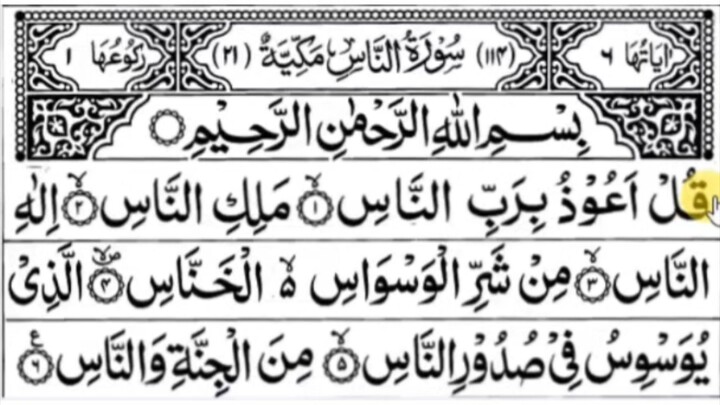 اٰیَاتُهَا ٦ (١١٤) سُوْرَةُ النَّاسِ مَكِّيَّةٌ (٢١) رُكُوْعُهَا ١
بِسْمِ اللّٰهِ الرَّحْمٰنِ الرَّحِيْمِ ○
قُلْ اَعُوْذُ بِرَبِّ النَّاسِ ۙ﴿١﴾ مَلِكِ النَّاسِ ۙ﴿٢﴾ اِلٰهِ
النَّاسِ ۙ﴿٣﴾ مِنْ شَرِّ الْوَسْوَاسِ ۙ۬ الْخَنَّاسِ ۪ۙ﴿٤﴾ الَّذِیْ
يُوَسْوِسُ فِیْ صُدُوْرِ النَّاسِ ۙ﴿٥﴾ مِنَ الْجِنَّةِ وَالنَّاسِ ﴿٦﴾ ع